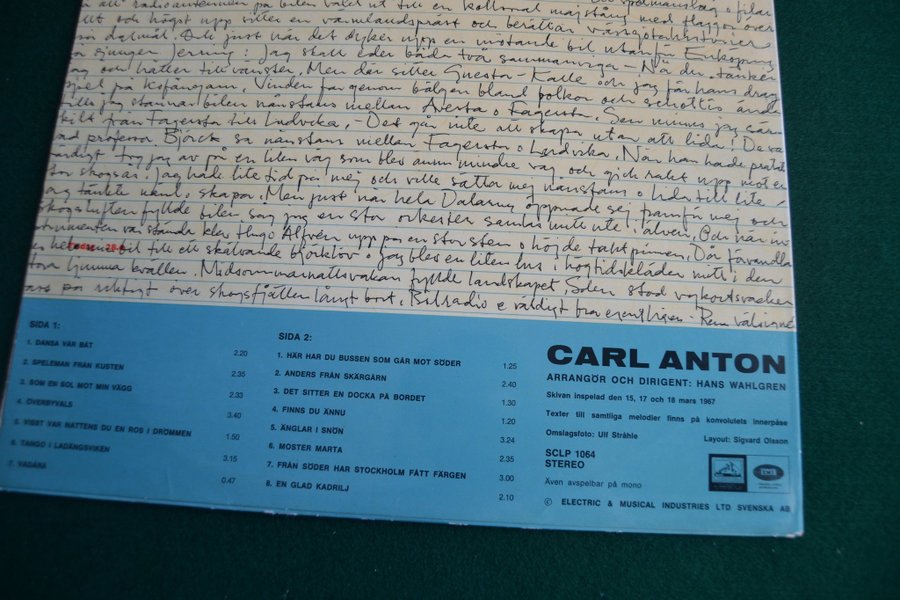 att radioantennen på bilen växt ut till en kolossal majstång med flaggor över
allt och högst upp sitter en värmlandspräst och berättar västgötahistorier
på dalmål. Och just när det dyker upp en mötande bil utanför Enköping
sjunger Jerring: Jag skall eder båda två sammanviga - När du tänker
och håller till vänster. Men där sitter Gnesta-Kalle och jag får hans drag
spel på kofångarn. Vinden far genom bälgen bland polkor och schottis ända
tills jag stannar bilen nånstans mellan Avesta o Fagersta. Sen minns jag
från Fagersta till Ludvika, - Det går inte att skapa utan att lida! De va
professor Björck sa nånstans mellan Fagersta o Ludvika. När han hade pratat
färdigt tog jag av på en liten väg som blev ännu mindre väg och gick rakt upp mot en
stor skogsås. Jag hade lite tid på mej och ville sätta mej nånstans o lida till lite -
jag tänkte nämli. skapa. Men just när hela Dalarna öppnade sej framför mej och
skogsluften fyllde bilen såg jag en stor orkester samlas mitt ute i älven. Och när in
strumenten va stämda klev Hugo Alfvén upp på en stor sten o höjde taktpinnen. Där förvandla
bil till ett skälvande björklöv o jag blev en liten lus i högtidskläder mitt i den
stora ljumma kvällen. Midsommarnattsvakan fyllde landskapet. Solen stod vykortsvacker
på riktigt över skogsfjällen långt bort. Bilradio e väldigt bra egentligen. Rena välsigne
SIDA 1:
1. DANSA VÅR BÅT 2.20
2. SPELEMAN FRÅN KUSTEN 2.35
3. SOM EN SOL MOT MIN VÄGG 2.33
4. ÖVERBYVALS 3.40
5. VISST VAR NATTENS DU EN ROS I DRÖMMEN 1.50
6. TANGO I LADÄNGSVIKEN 3.15
7. VADARÅ 0.47
SIDA 2:
1. HÄR HAR DU BUSSEN SOM GÅR MOT SÖDER 1.25
2. ANDERS FRÅN SKÄRGÅRN 2.40
3. DET SITTER EN DOCKA PÅ BORDET 1.30
4. FINNS DU ÄNNU 1.20
5. ÄNGLAR I SNÖN 3.24
6. MOSTER MARTA 2.35
7. FRÅN SÖDER HAR STOCKHOLM FÅTT FÄRGEN 3.00
8. EN GLAD KADRILJ 2.10
CARL ANTON
ARRANGÖR OCH DIRIGENT: HANS WAHLGREN
Skivan inspelad den 15, 17 och 18 mars 1967
Texter till samtliga melodier finns på konvolutets innerpåse
Omslagsfoto: Ulf Stråhle Layout: Sigvard Olsson
SCLP 1064
STEREO
Även avspelbar på mono
EMI
© ELECTRIC & MUSICAL INDUSTRIES LTD SVENSKA AB